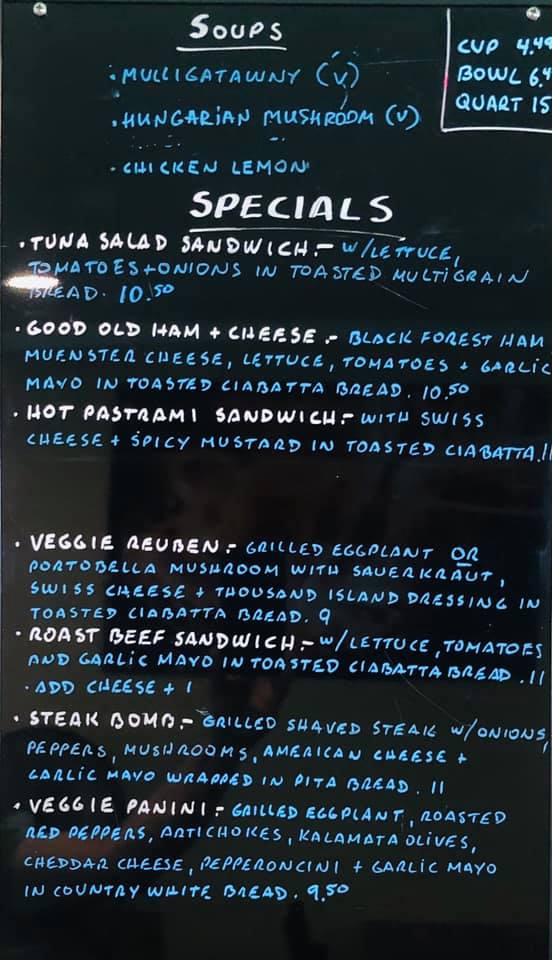 SOUPS
CUP 4.49
BOWL 6.4
QUART 15
• MULLIGATAWNY (V)
• HUNGARIAN MUSHROOM (V)
• CHICKEN LEMON
SPECIALS
• TUNA SALAD SANDWICH.- W/LETTUCE,
TOMATOES + ONIONS IN TOASTED MULTIGRAIN
BREAD. 10.50
• GOOD OLD HAM + CHEESE.- BLACK FOREST HAM
MUENSTER CHEESE, LETTUCE, TOMATOES + GARLIC
MAYO IN TOASTED CIABATTA BREAD. 10.50
• HOT PASTRAMI SANDWICH.- WITH SWISS
CHEESE + SPICY MUSTARD IN TOASTED CIABATTA. 11
• VEGGIE REUBEN.- GRILLED EGGPLANT OR
PORTOBELLA MUSHROOM WITH SAUERKRAUT,
SWISS CHEESE + THOUSAND ISLAND DRESSING IN
TOASTED CIABATTA BREAD. 9
• ROAST BEEF SANDWICH.- W/LETTUCE, TOMATOES
AND GARLIC MAYO IN TOASTED CIABATTA BREAD. 11
• ADD CHEESE + 1
• STEAK BOMB.- GRILLED SHAVED STEAK W/ONIONS,
PEPPERS, MUSHROOMS, AMERICAN CHEESE +
GARLIC MAYO WRAPPED IN PITA BREAD. 11
• VEGGIE PANINI.- GRILLED EGGPLANT, ROASTED
RED PEPPERS, ARTICHOKES, KALAMATA OLIVES,
CHEDDAR CHEESE, PEPPERONCINI + GARLIC MAYO
IN COUNTRY WHITE BREAD. 9.50